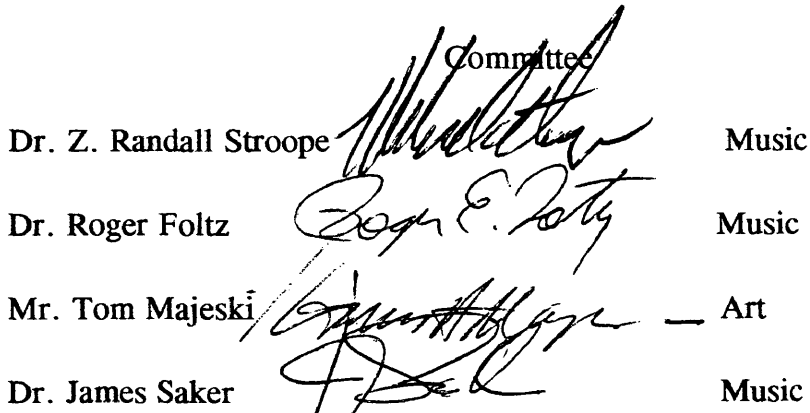 Committee
Dr. Z. Randall Stroope Music
Dr. Roger Foltz Roger E. Foltz Music
Mr. Tom Majeski Art
Dr. James Saker Music